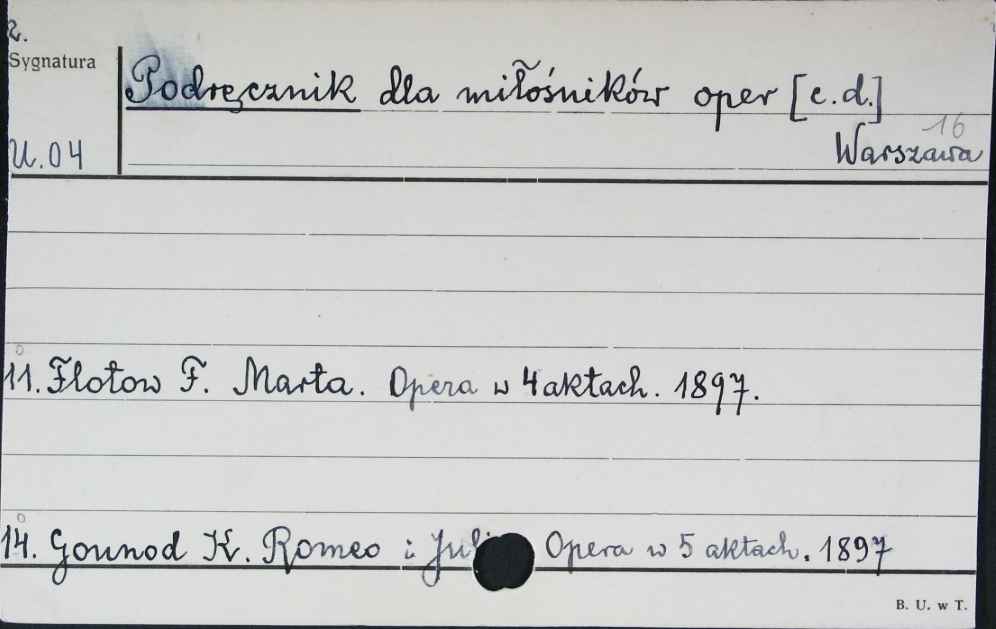 2.
Sygnatura
Podręcznik dla miłośników oper [c.d.]
16
U.04
Warszawa
11. Flotow F. Marta. Opera w 4 aktach. 1897.
14. Gounod K. Romeo i Opera w 5 aktach. 1897
B. U. w T.